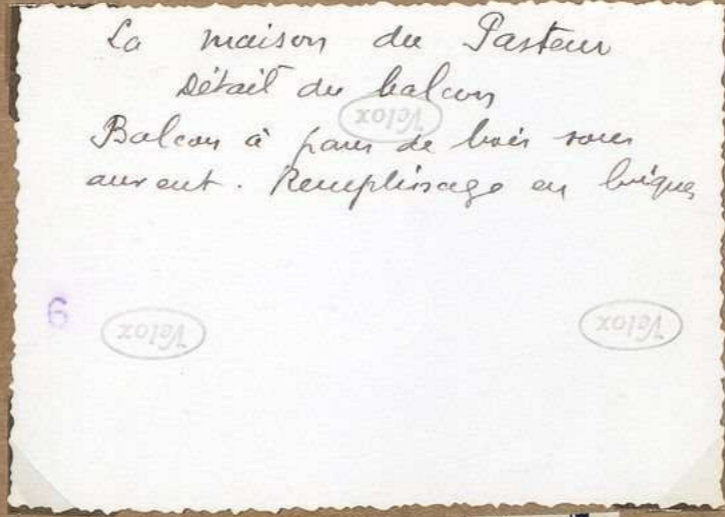 La maison du Pasteur
Détail du balcon
Velox
Balcon à pans de bois sous
auvent. Remplissage en briques
6
Velox
Velox